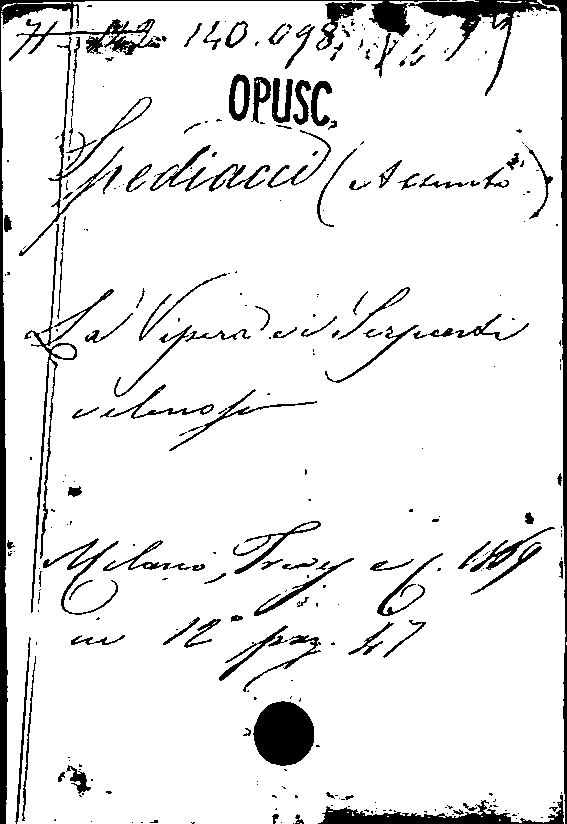 140.098
OPUSC.
Spediacci (Assunto)
La Vipera e i Serpenti
velenosi
Milano, Treves e C. 1869
in 12° pag. 47